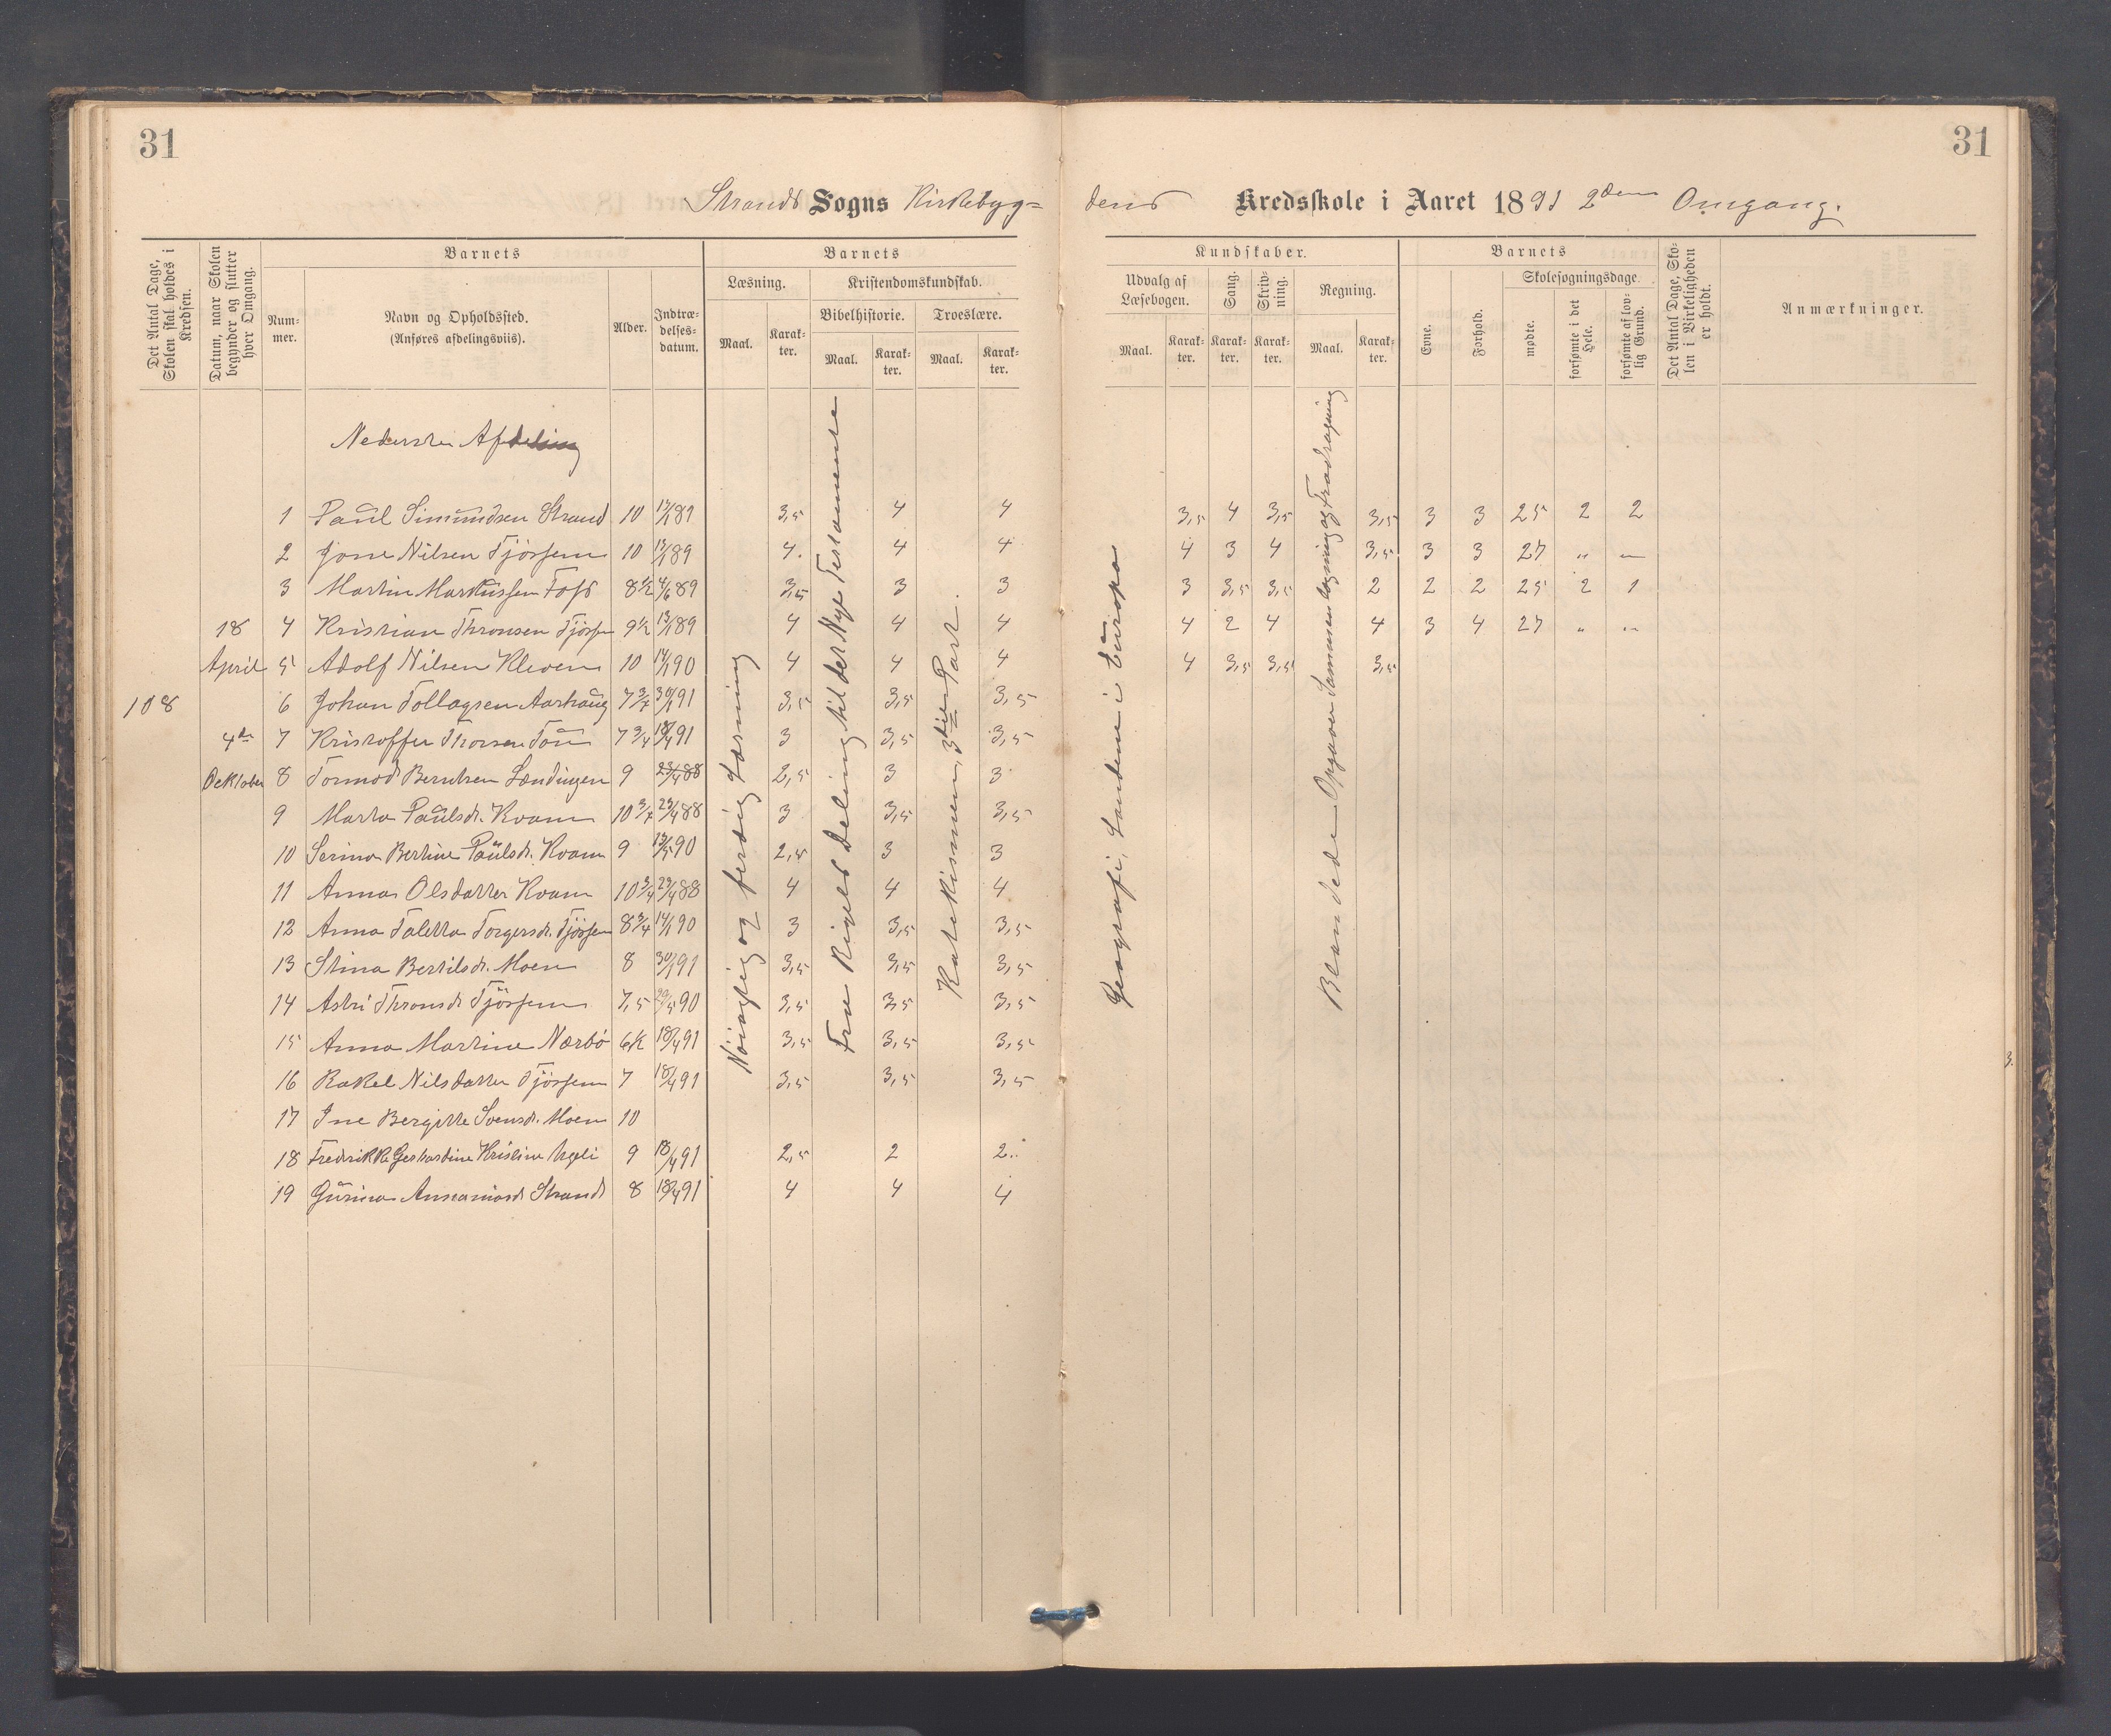 31
31
Strands Sogns Kirkebyg=
dens Kredsskole i Aaret 1891 2den Omgang.
Det Antal Dage, Skolen skal holdes i Kredsen.
Datum, naar Skolen begynder og slutter hver Omgang.
Barnets
Num-mer.
Navn og Opholdssted. (Anføres afdelingsviis).
Alder.
Indtræ-delses-datum.
Barnets
Læsning.
Maal.
Karak-ter.
Kristendomskundskab.
Bibelhistorie.
Maal.
Karak-ter.
Troeslære.
Maal.
Karak-ter.
Kundskaber.
Udvalg af Læsebogen.
Maal.
Karak-ter.
Sang.
Karak-ter.
Skriv-ning.
Karak-ter.
Regning.
Maal.
Karak-ter.
Barnets
Evne.
Forhold.
Skolesøgningsdage.
mødte.
forsømte i det Hele.
forsømte af lov-lig Grund.
Det Antal Dage, Sko-len i Virkeligheden er holdt.
Anmærkninger.
Nederste Afdeling
108
18 April
4de Oektober
Nøiagtig og ferdig Læsning
Fra Rigets Deling til det Nye Testamente
Katekismen, 3die Part.
Geografi, Landene i Europa
Blandede Opgaver Sammenlægning og Fradragning
1 Paul Simundsen Strand 10 13/1 89 3,5 4 4 3,5 4 3,5 3,5 3 3 25 2 2
2 Jone Nilsen Tjøssem 10 13/1 89 4. 4 4 4 3 4 3,5 3 3 27 " "
3 Martin Markussen Foss 8 1/2 4/6 89 3,5 3 3 3 3,5 3,5 2 2 2 25 2 1
4 Kristian Thronsen Tjøssem 9 1/2 13/1 89 4 4 4 4 2 4 4 3 4 27 " "
5 Adolf Nilsen Kleven 10 14/1 90 4 4 4 4 3,5 3,5 3,5
6 Johan Tollagsen Aarhaug 7 3/4 30/1 91 3,5 3,5 3,5
7 Kristoffer Thorsen Tou 7 3/4 18/4 91 3 3,5 3,5
8 Tormod Berntsen Lændingen 9 23/4 88 2,5 3 3
9 Marta Paulsdt. Kvam 10 3/4 23/4 88 3 3,5 3,5
10 Serina Bertine Paulsdt. Kvam 9 13/5 90 2,5 3 3
11 Anna Olsdatter Kvam 10 3/4 23/4 88 4 4 4
12 Anna Taletta Torgersdt. Tjøssem 8 3/4 14/1 90 3 3,5 3,5
13 Stina Bertilsdt. Moen 8 30/1 91 3,5 3,5 3,5
14 Astri Thronsdt Tjøssem 7,5 20/5 90 3,5 3,5 3,5
15 Anna Martine Nærbø 6 1/2 18/4 91 3,5 3,5 3,5
16 Rakel Nilsdatter Tjøssem 7 18/4 91 3,5 3,5 3,5
17 Ine Bergitte Svensdt. Moen 10
18 Fredrikka Gerhardine Kristine 9 18/4 91 2,5 2 2
19 Gurina Strand 8 18/4 91 4 4 4
3.